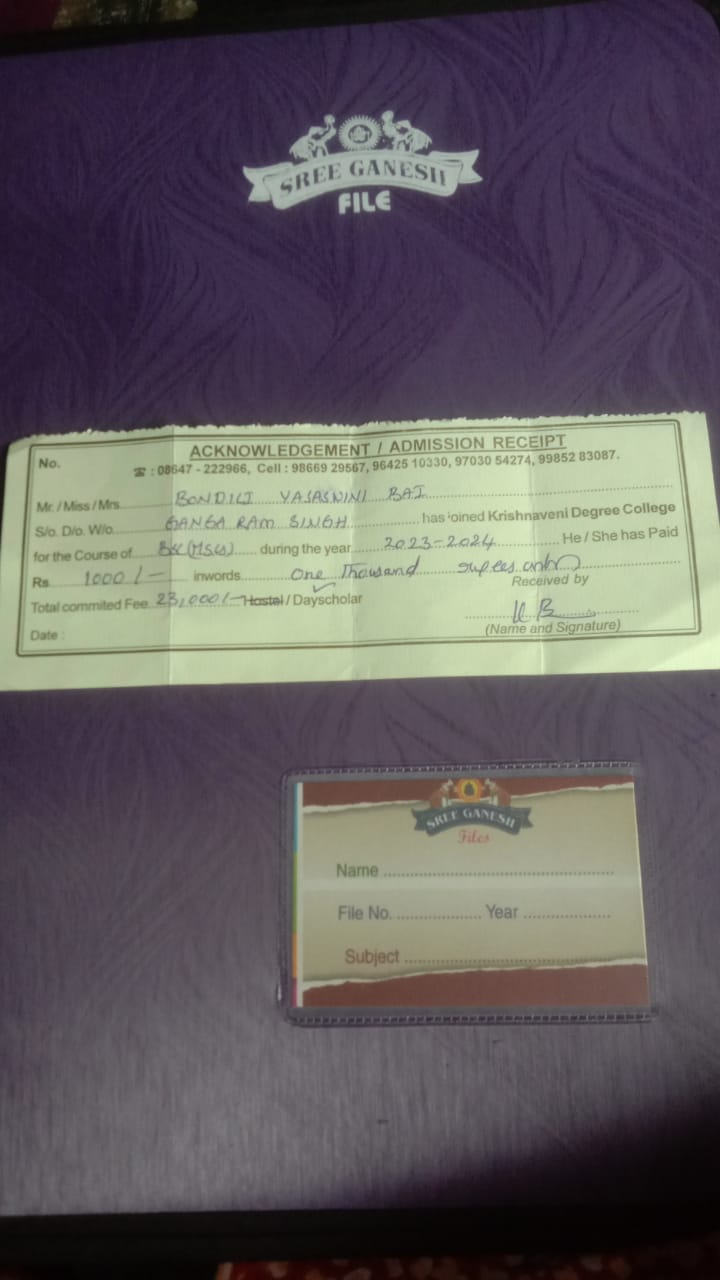 SREE GANESH
FILE
ACKNOWLEDGEMENT / ADMISSION RECEIPT
No.
☎ : 08647 - 222966, Cell : 98669 29567, 96425 10330, 97030 54274, 99852 83087.
Mr. / Miss / Mrs. BONDILI YASASNINI BAI
S/o. D/o. W/o. GANGA RAM SINGH has joined Krishnaveni Degree College
for the Course of BSC(MSCs) during the year 2023-2024 He / She has Paid
Rs 1000/- inwords One Thousand rupees only
Received by
Total commited Fee. 23,000/- Hostel / Dayscholar
(Name and Signature)
Date :
SREE GANESH
Files
Name
File No. Year
Subject